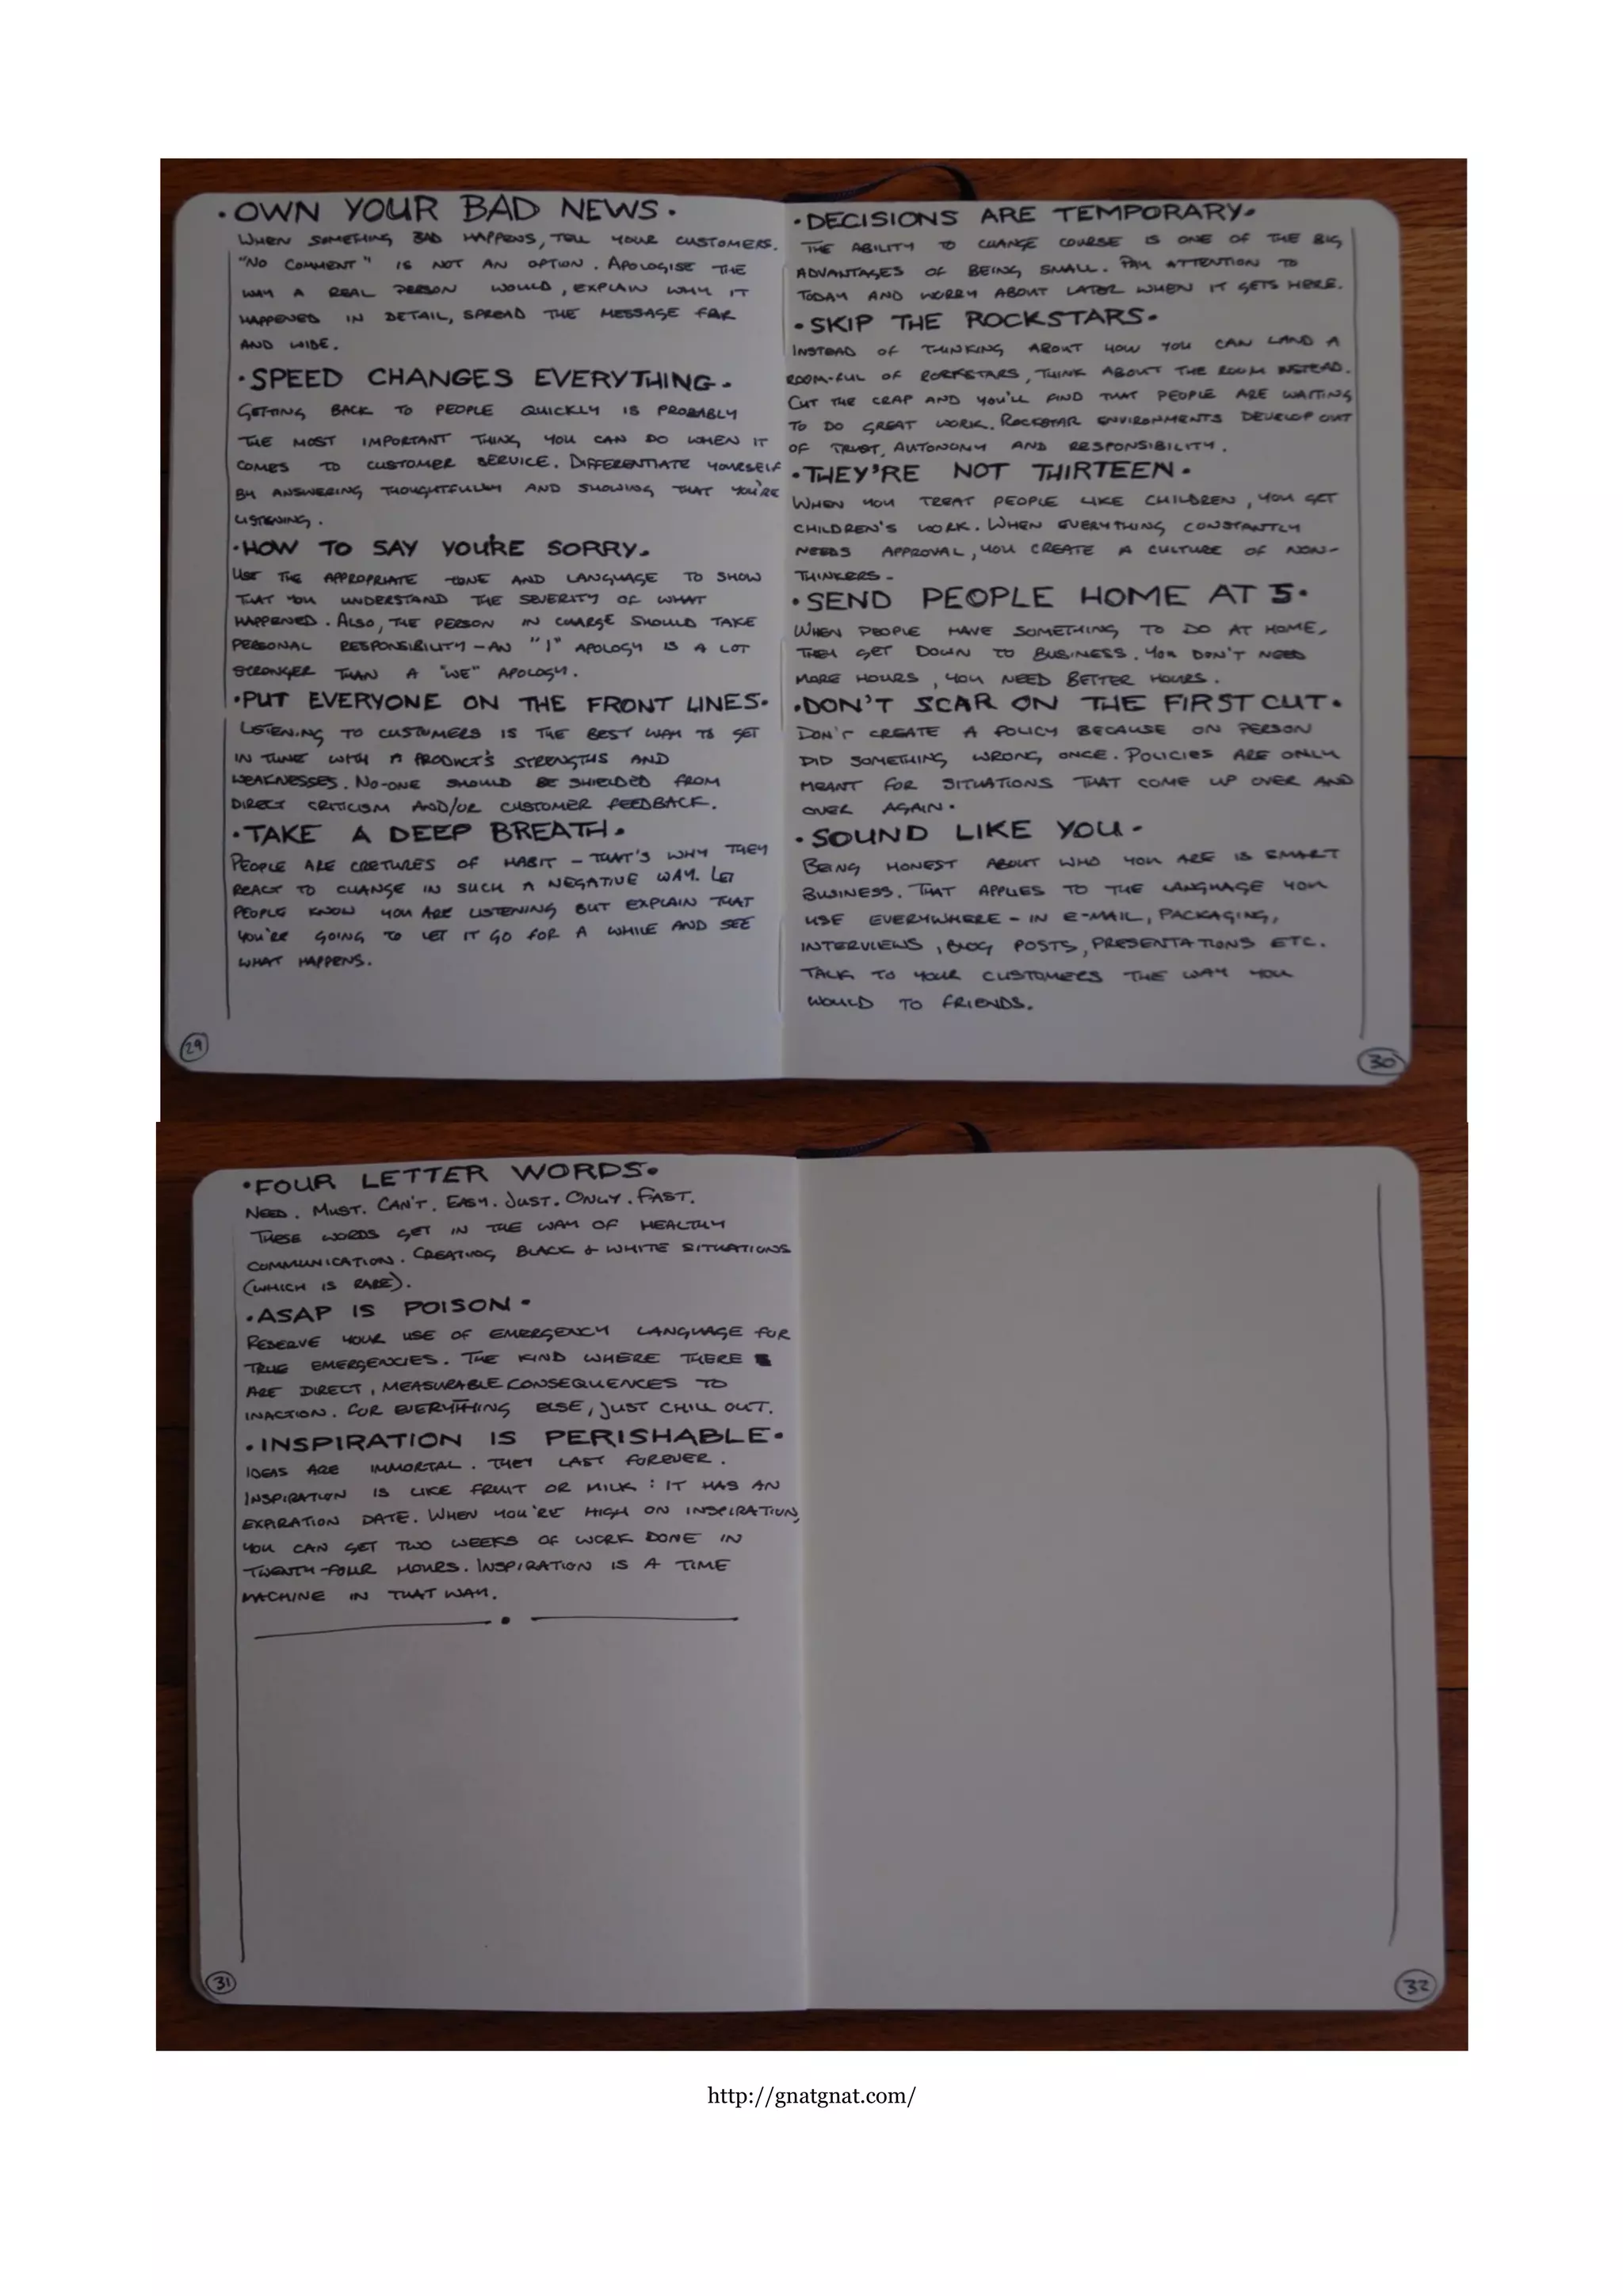 ·OWN YOUR BAD NEWS·
WHEN SOMETHING BAD HAPPENS, TELL YOUR CUSTOMERS.
"NO COMMENT" IS NOT AN OPTION. APOLOGISE THE
WAY A REAL PERSON WOULD, EXPLAIN WHY IT
HAPPENED IN DETAIL, SPREAD THE MESSAGE FAR
AND WIDE.
·SPEED CHANGES EVERYTHING·
GETTING BACK TO PEOPLE QUICKLY IS PROBABLY
THE MOST IMPORTANT THING YOU CAN DO WHEN IT
COMES TO CUSTOMER SERVICE. DIFFERENTIATE YOURSELF
BY ANSWERING THOUGHTFULLY AND SHOWING THAT YOU'RE
LISTENING.
·HOW TO SAY YOU'RE SORRY·
USE THE APPROPRIATE TONE AND LANGUAGE TO SHOW
THAT YOU UNDERSTAND THE SEVERITY OF WHAT
HAPPENED. ALSO, THE PERSON IN CHARGE SHOULD TAKE
PERSONAL RESPONSIBILITY - AN "I" APOLOGY IS A LOT
STRONGER THAN A "WE" APOLOGY.
·PUT EVERYONE ON THE FRONT LINES·
LISTENING TO CUSTOMERS IS THE BEST WAY TO GET
IN TUNE WITH A PRODUCT'S STRENGTHS AND
WEAKNESSES. NO-ONE SHOULD BE SHIELDED FROM
DIRECT CRITICISM AND/OR CUSTOMER FEEDBACK.
·TAKE A DEEP BREATH·
PEOPLE ARE CRETURES OF HABIT - THAT'S WHY THEY
REACT TO CHANGE IN SUCH A NEGATIVE WAY. LET
PEOPLE KNOW YOU ARE LISTENING BUT EXPLAIN THAT
YOU'RE GOING TO LET IT GO FOR A WHILE AND SEE
WHAT HAPPENS.
29
·DECISIONS ARE TEMPORARY·
THE ABILITY TO CHANGE COURSE IS ONE OF THE BIG
ADVANTAGES OF BEING SMALL. PAY ATTENTION TO
TODAY AND WORRY ABOUT LATER WHEN IT GETS HERE.
·SKIP THE ROCKSTARS·
INSTEAD OF THINKING ABOUT HOW YOU CAN LAND A
ROOM-FUL OF ROCKSTARS, THINK ABOUT THE ROOM INSTEAD.
CUT THE CRAP AND YOU'LL FIND THAT PEOPLE ARE WAITING
TO DO GREAT WORK. ROCKSTAR ENVIRONMENTS DEVELOP OUT
OF TRUST, AUTONOMY AND RESPONSIBILITY.
·THEY'RE NOT THIRTEEN·
WHEN YOU TREAT PEOPLE LIKE CHILDREN, YOU GET
CHILDREN'S WORK. WHEN EVERYTHING CONSTANTLY
NEEDS APPROVAL, YOU CREATE A CULTURE OF NON-
THINKERS.
·SEND PEOPLE HOME AT 5·
WHEN PEOPLE HAVE SOMETHING TO DO AT HOME,
THEY GET DOWN TO BUSINESS. YOU DON'T NEED
MORE HOURS, YOU NEED BETTER HOURS.
·DON'T SCAR ON THE FIRST CUT·
DON'T CREATE A POLICY BECAUSE ON PERSON
DID SOMETHING WRONG ONCE. POLICIES ARE ONLY
MEANT FOR SITUATIONS THAT COME UP OVER AND
OVER AGAIN.
·SOUND LIKE YOU·
BEING HONEST ABOUT WHO YOU ARE IS SMART
BUSINESS. THAT APPLIES TO THE LANGUAGE YOU
USE EVERYWHERE - IN E-MAIL, PACKAGING,
INTERVIEWS, BLOG POSTS, PRESENTATIONS ETC.
TALK TO YOUR CUSTOMERS THE WAY YOU
WOULD TO FRIENDS.
30
·FOUR LETTER WORDS·
NEED. MUST. CAN'T. EASY. JUST. ONLY. FAST.
THESE WORDS GET IN THE WAY OF HEALTHY
COMMUNICATION. CREATING BLACK & WHITE SITUATIONS
(WHICH IS RARE).
·ASAP IS POISON·
RESERVE YOUR USE OF EMERGENCY LANGUAGE FOR
TRUE EMERGENCIES. THE KIND WHERE THERE
ARE DIRECT, MEASURABLE CONSEQUENCES TO
INACTION. FOR EVERYTHING ELSE, JUST CHILL OUT.
·INSPIRATION IS PERISHABLE·
IDEAS ARE IMMORTAL. THEY LAST FOREVER.
INSPIRATION IS LIKE FRUIT OR MILK: IT HAS AN
EXPIRATION DATE. WHEN YOU'RE HIGH ON INSPIRATION,
YOU CAN GET TWO WEEKS OF WORK DONE IN
TWENTY-FOUR HOURS. INSPIRATION IS A TIME
MACHINE IN THAT WAY.
31
32
http://gnatgnat.com/